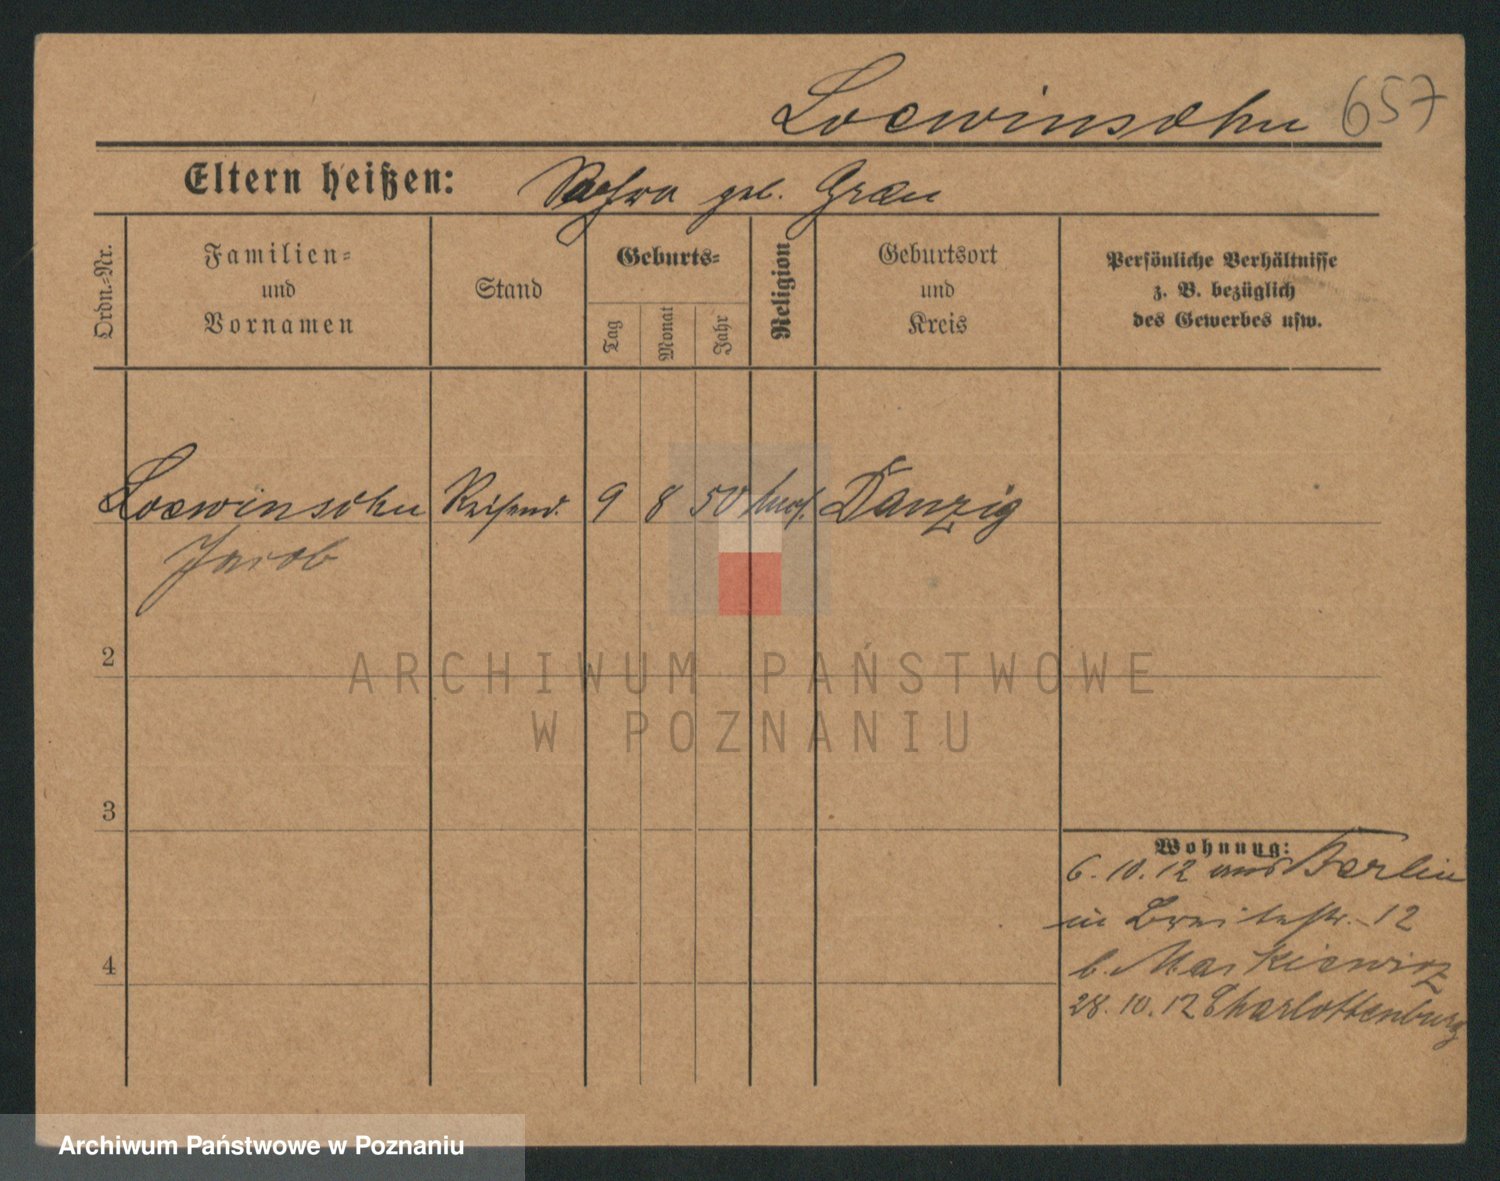 Loewinsohn 657
Eltern heißen:
geb.
Ordn.-Nr.
Familien-
und
Vornamen
Stand
Geburts-
Tag
Monat
Jahr
Religion
Geburtsort
und
Kreis
Persönliche Verhältnisse
z. B. bezüglich
des Gewerbes usw.
Loewinsohn Reisend. 9 8 50 mos. Danzig
Jacob
2
ARCHIWUM PAŃSTWOWE
W POZNANIU
3
Wohnung:
6.10.12 aus Berlin
in Breitestr. 12
4
b. Markiewicz
28.10.12 Charlottenburg
Archiwum Państwowe w Poznaniu